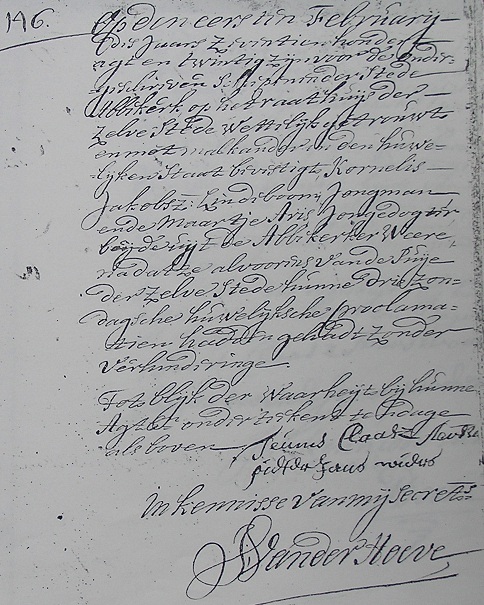 146.
Op den eersten February
des Jaars Zeventien hondert
agt en twintig zyn voor de onder-
geschreven Schepenen der Stede
Abbikerk, op het raathuijs der
Zelve Stede wettelijk getrouwt
en met malkander in den huwe-
lijken Staat bevestigt, Kornelis
Jakobsz: Lindeboom, Jongman
ende Maartje Aris Jongedogter
beyde uyt de Abbikerker Weere
nadat ze alvoorens van de Puije
der Zelver Stede hunne drie Zon-
dagsche huwelijksche proclama-
tien hadden gehadt zonder
verhinderinge.
Tot blyk der Waarheijt bij hunne
Agtb: ondertekent ten dage
als boven Teunis Claasz
pieter Jans
In kennisse van mij Secret:s
Vander Hoeve